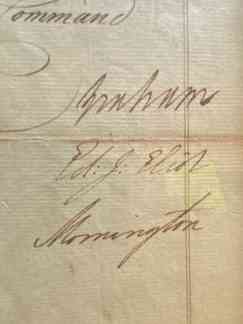 Command
Graham
Ed: J. Eliot
Mornington